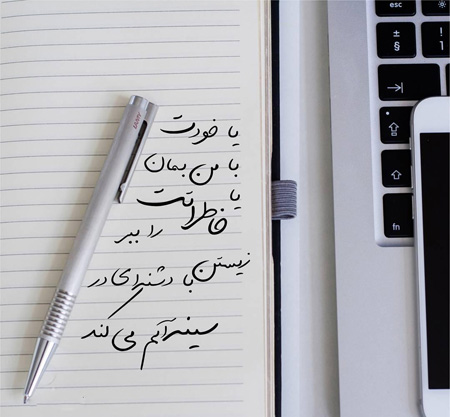 یا خودت
با من بمان
یا خاطراتت
را ببر
زیستن با دشنه‌ای در
سینه می کند
LAMY
esc
±
§
!
1
fn